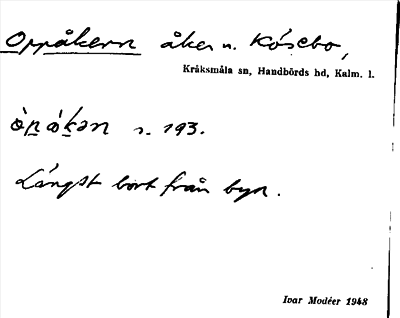 Oppåkern åker n. Kösebo,
Kråksmåla sn, Handbörds hd, Kalm. l.
òpåkan s. 193.
Längst bort från byn.
Ivar Modéer 1948